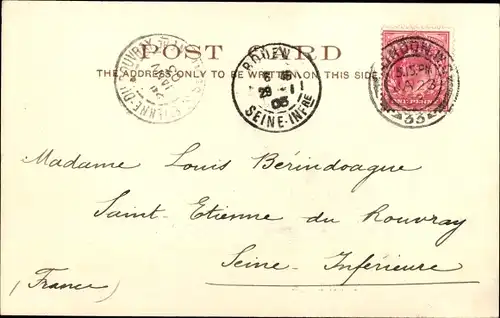 POST CARD
THE ADDRESS ONLY TO BE WRITTEN ON THIS SIDE
ROUEN
SEINE-INFRE
LONDON
5.15 PM
33
Madame Louis Bérindoague
Saint-Etienne du Rouvray
Seine-Inférieure
(France)